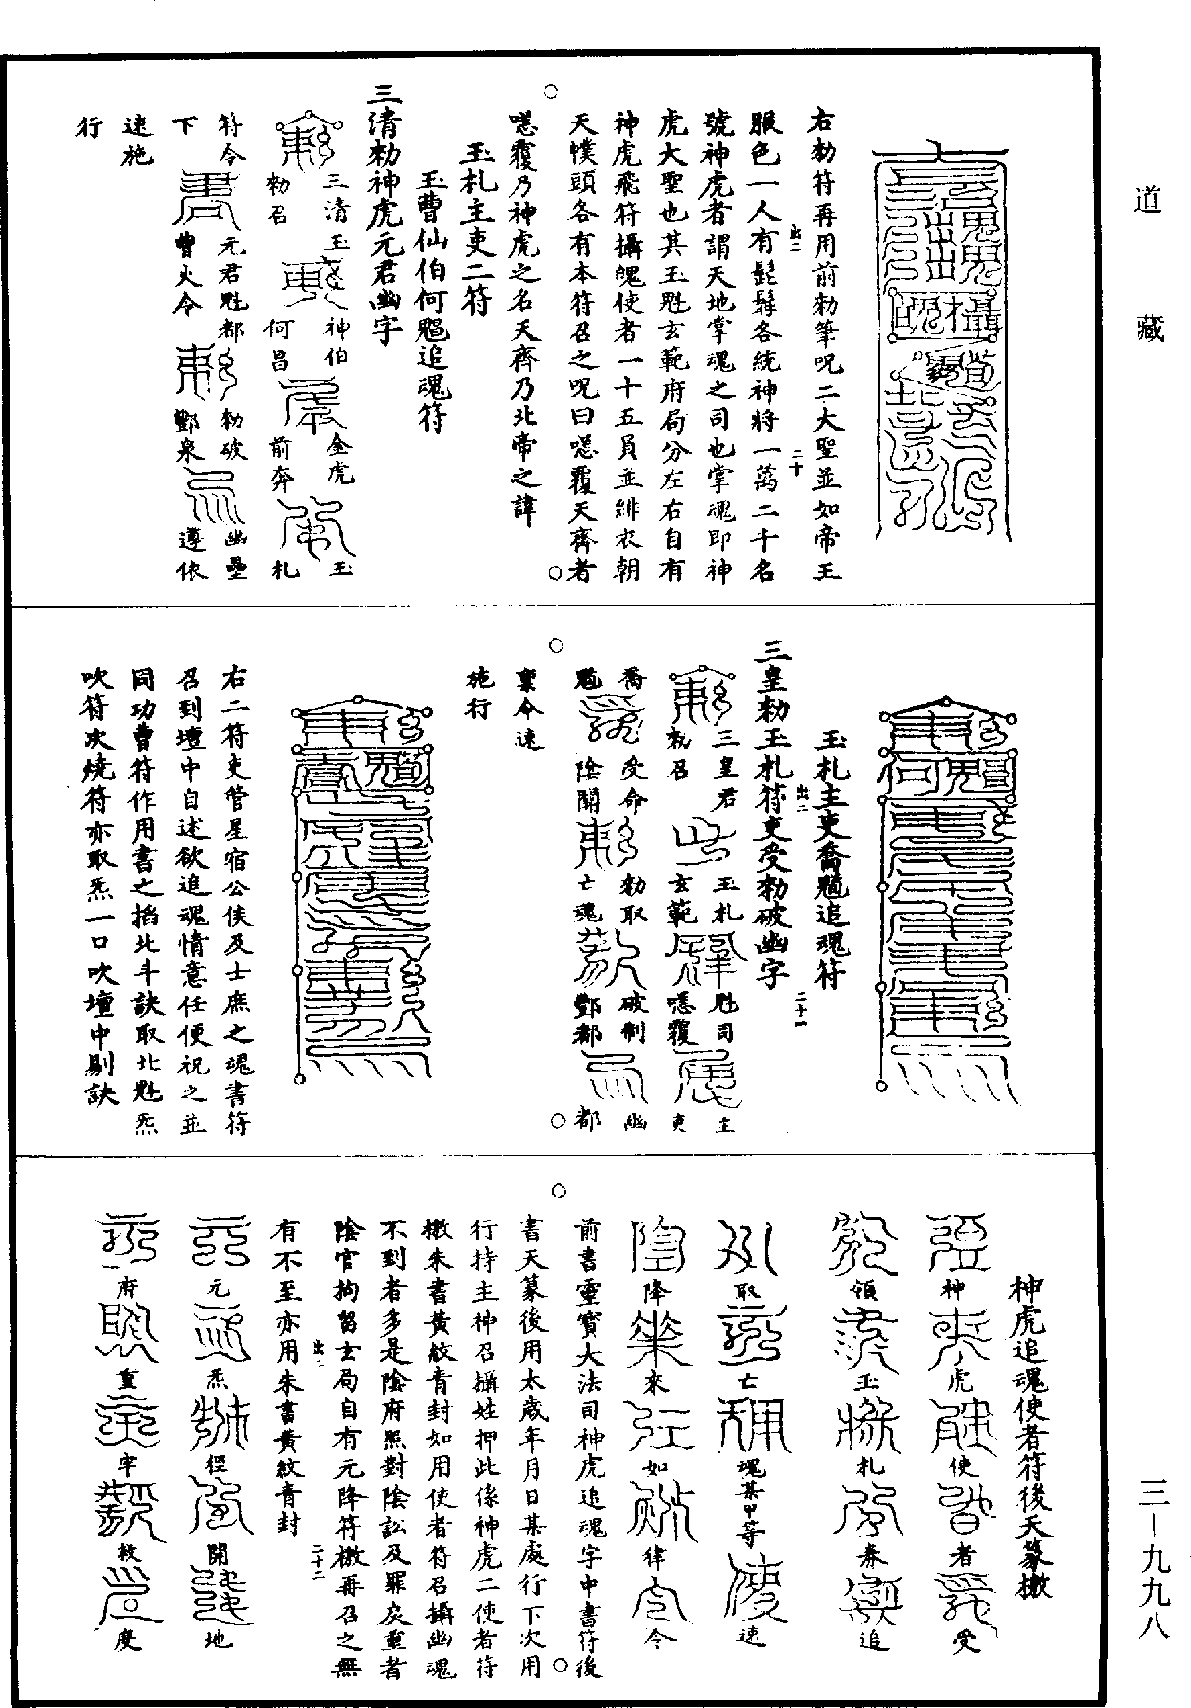 道藏
右勑符再用前勑筆呪二大聖並如帝王
服色一人有髭髯各統神將一萬二千名
號神虎者謂天地掌魂之司也掌魂即神
虎大聖也其玉魁玄範府局分左右自有
神虎飛符攝魄使者一十五員並緋衣朝
天幞頭各有本符召之呪曰
覆天齊者
覆乃神虎之名天齊乃北帝之諱
玉札主吏二符
玉曹仙伯何
追魂符
三清勑神虎元君幽字
三清玉
勑召
神伯
何昌
金虎
前奔
玉
札
符令
元君魁都
曹火令
勑破
酆泉
幽壘
遵依
下
速施
行
玉札主吏喬
追魂符
三皇勑玉札符吏受勑破幽字
三皇君
勑召
玉札
玄範
魁司
覆
主
吏
喬
受命
陰關
勑取
亡魂
破制
酆都
幽
都
稟令速
施行
右二符吏管星宿公侯及士庶之魂書符
召到壇中自述欲追魂情意任便祝之並
同功曹符作用書之掐北斗訣取北魁炁
吹符次燒符亦取炁一口吹壇中剔訣
神虎追魂使者符後天篆檄
神
虎
使
者
受
領
玉
札
奉
追
取
亡
魂某甲等
速
降
來
如
律
令
前書靈寶大法司神虎追魂字中書符後
書天篆後用太歲年月日某處行下次用
行持主神召攝姓押此係神虎二使者符
檄朱書黃紋青封如用使者符召攝幽魂
不到者多是陰府照對陰訟及罪戾重者
陰官拘留士局自有元降符檄再召之無
有不至亦用朱書黃紋青封
元
炁
徑
開
地
府
重
牢
赦
度
出二
二十
出二
二十一
出二
二十二
三－九九八